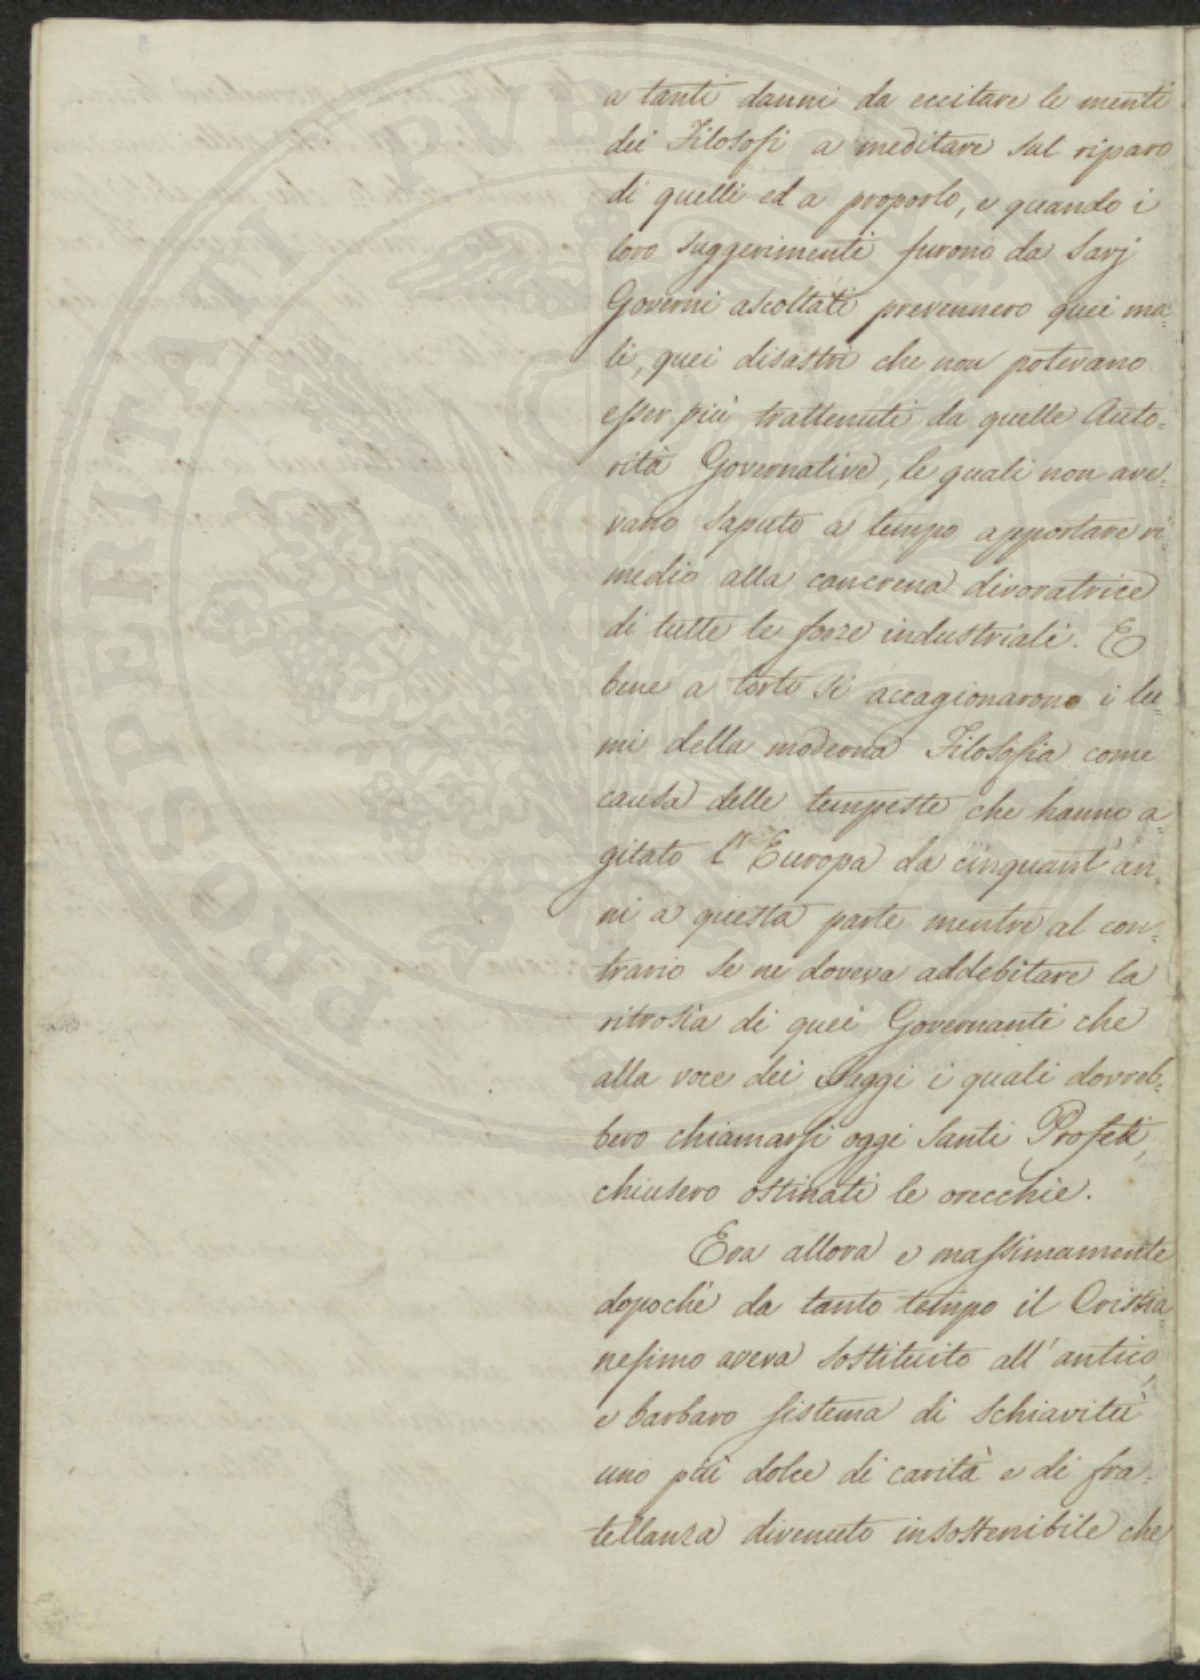 a tanti danni da eccitare le menti
dei Filosofi a meditare sul riparo
di quelli ed a proporlo, e quando i
loro suggerimenti furono da Savj
Governi ascoltati prevennero quei ma=
li, quei disastri che non potevano
esser più trattenuti da quelle Auto=
rità Governative, le quali non ave=
vano saputo a tempo apportare ri=
medio alla cancrena divoratrice
di tutte le forze industriali. E
bene a torto si accagionarono i lu=
mi della moderna Filosofia come
causa delle tempeste che hanno a=
gitato l'Europa da cinquant'an=
ni a questa parte mentre al con=
trario se ne doveva addebitare la
ritrosia di quei Governanti che
alla voce dei Saggi i quali dovreb=
bero chiamarsi oggi Santi Profeti,
chiusero ostinati le orecchie.
Era allora e massimamente
dopochè da tanto tempo il Cristia=
nesimo aveva sostituito all'antico,
e barbaro sistema di schiavitù
uno più dolce di carità e di fra=
tellanza divenuto insostenibile che
PROSPERITATI PUBLICAE